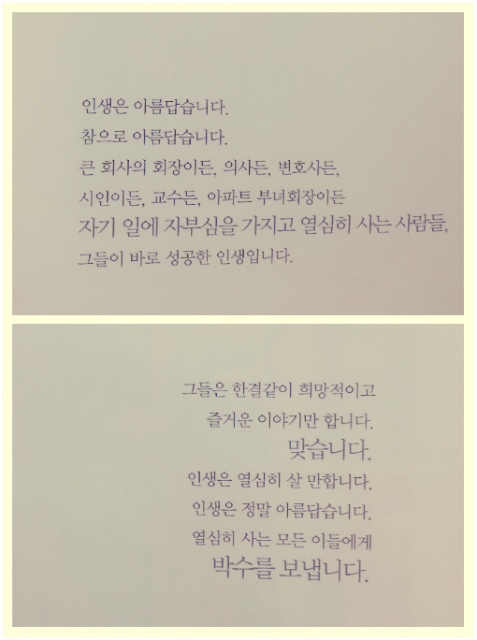 인생은 아름답습니다.
참으로 아름답습니다.
큰 회사의 회장이든, 의사든, 변호사든,
시인이든, 교수든, 아파트 부녀회장이든
자기 일에 자부심을 가지고 열심히 사는 사람들,
그들이 바로 성공한 인생입니다.
그들은 한결같이 희망적이고
즐거운 이야기만 합니다.
맞습니다.
인생은 열심히 살 만합니다.
인생은 정말 아름답습니다.
열심히 사는 모든 이들에게
박수를 보냅니다.